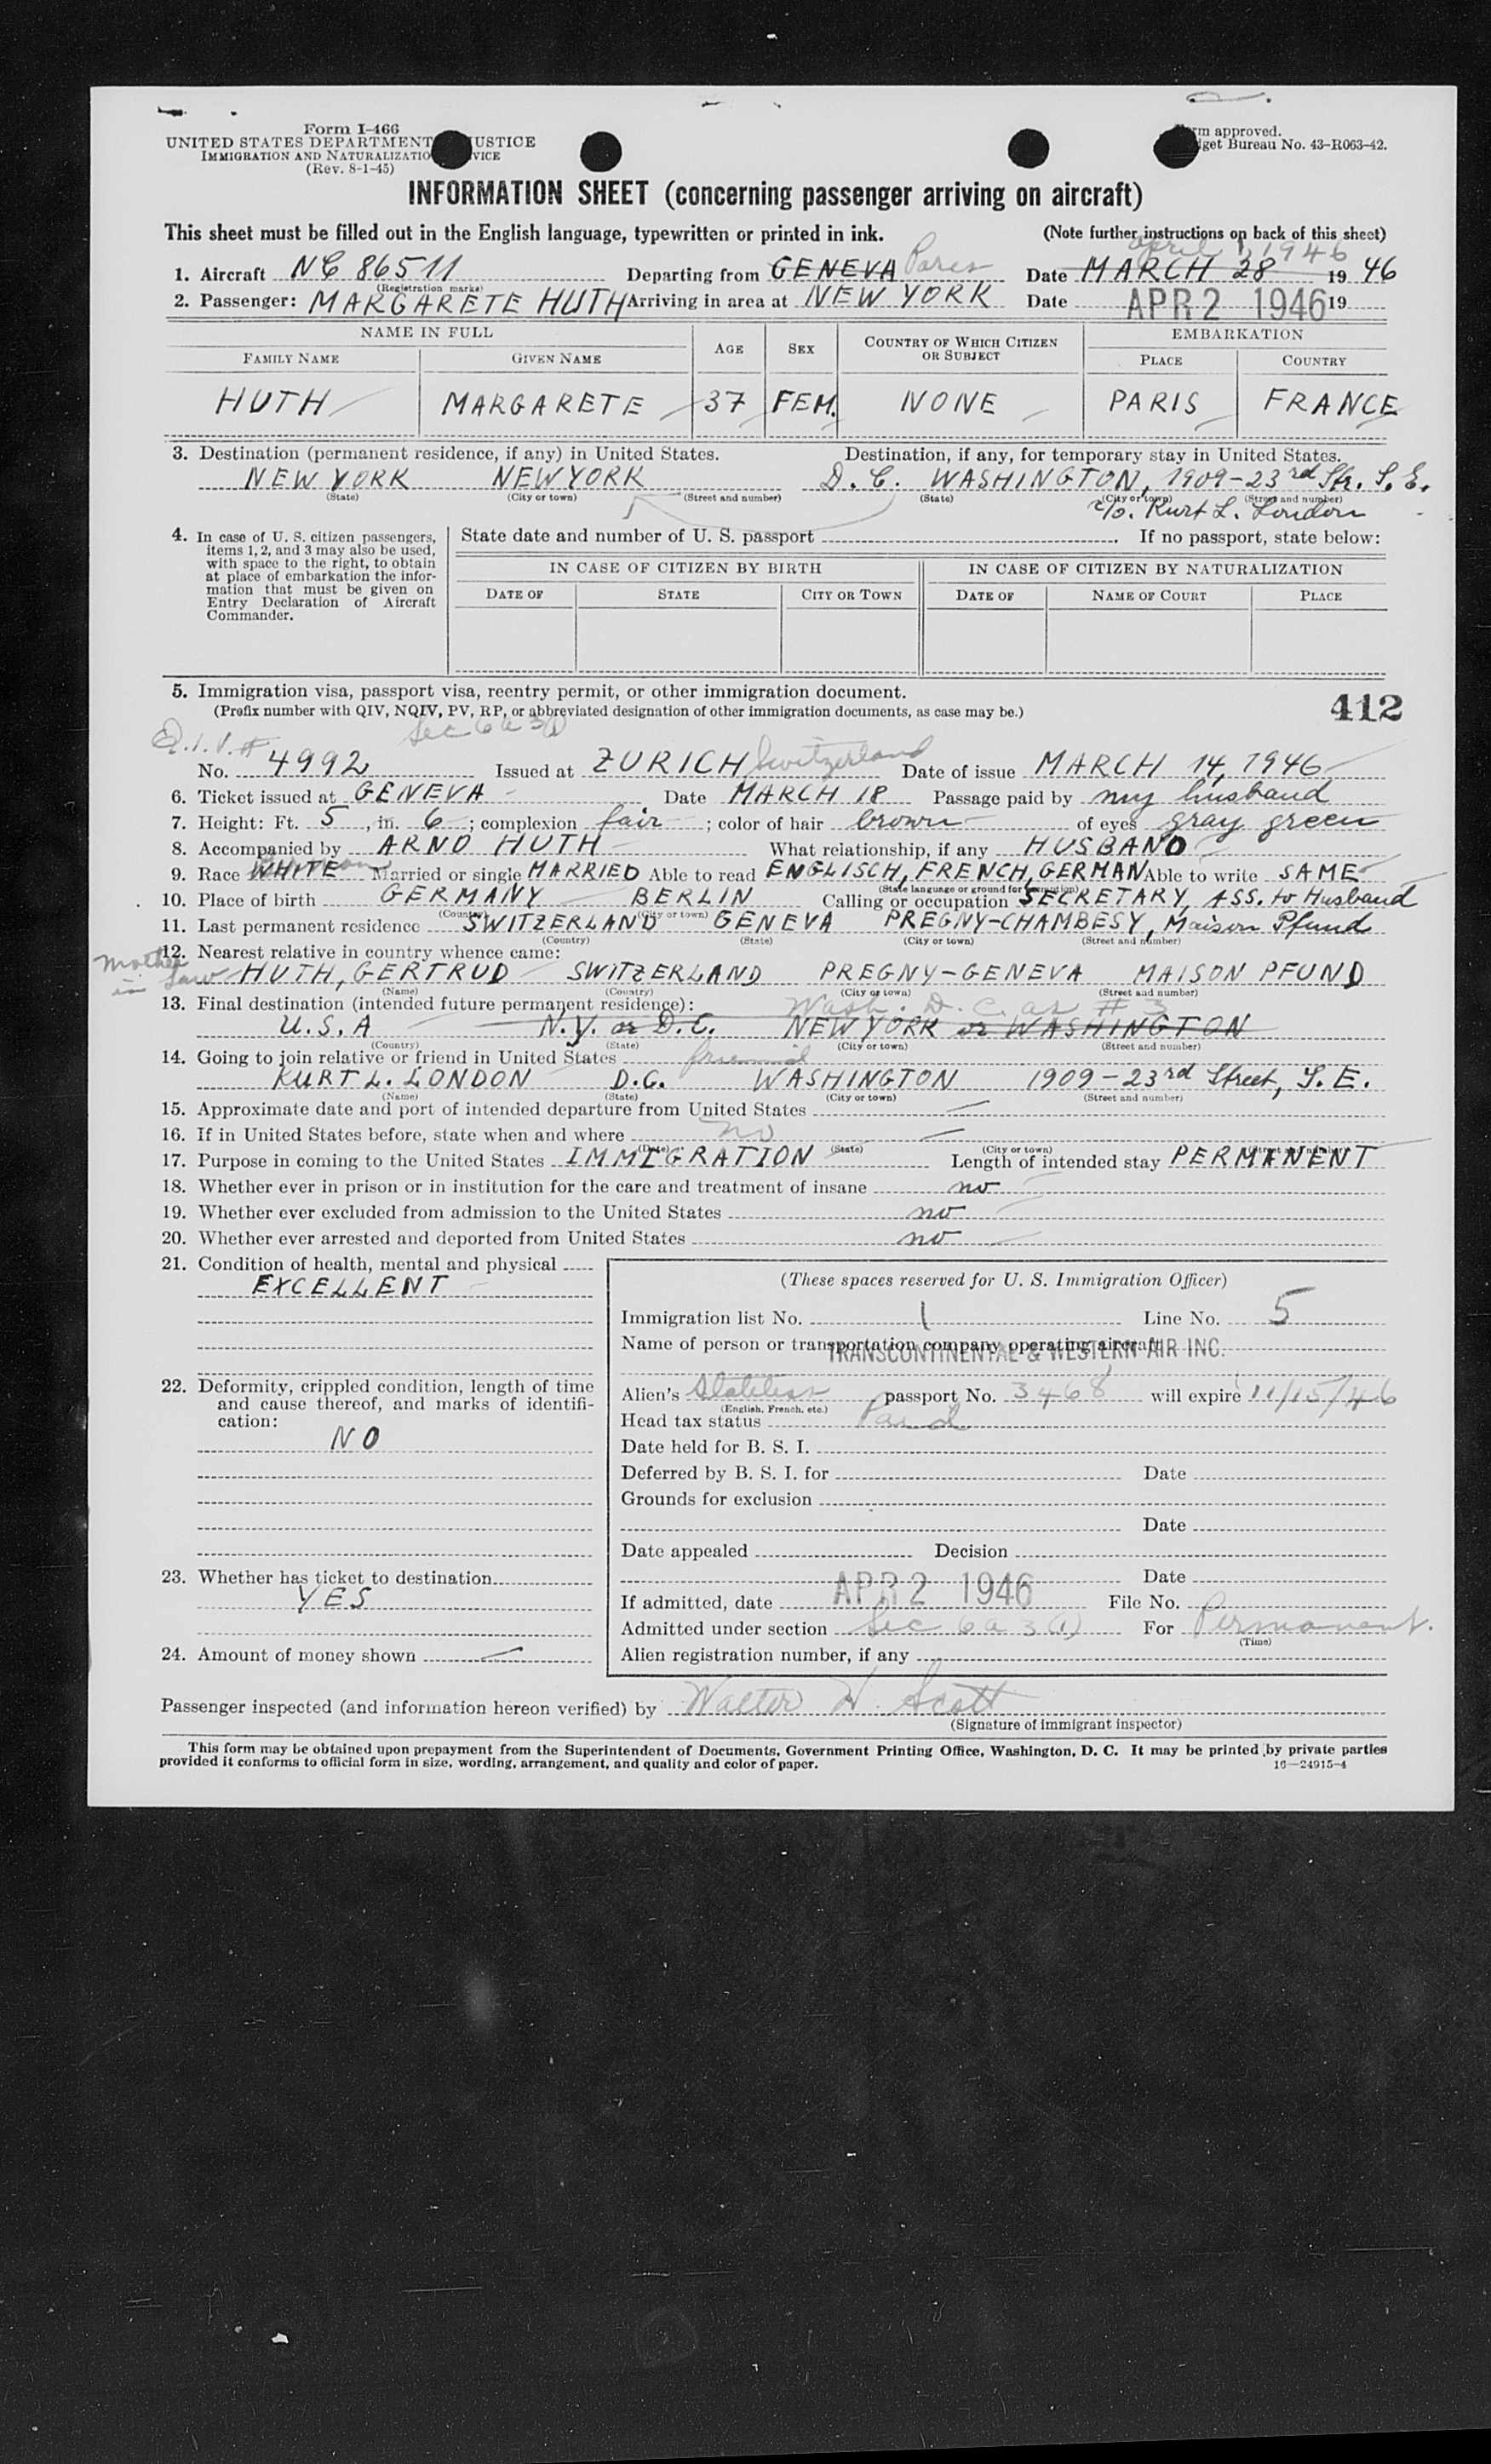 Form I-466
UNITED STATES DEPARTMENT JUSTICE
IMMIGRATION AND NATURALIZATIO VICE
(Rev. 8-1-45)
rm approved.
get Bureau No. 43-R063-42.
INFORMATION SHEET (concerning passenger arriving on aircraft)
This sheet must be filled out in the English language, typewritten or printed in ink. (Note further instructions on back of this sheet)
April 1, 1946
1. Aircraft NC 86511 Departing from GENEVA Paris Date MARCH 28 19 46
(Registration marks)
2. Passenger: MARGARETE HUTH Arriving in area at NEW YORK Date APR 2 1946 19
NAME IN FULL AGE SEX COUNTRY OF WHICH CITIZEN OR SUBJECT EMBARKATION
FAMILY NAME GIVEN NAME PLACE COUNTRY
HUTH MARGARETE 37 FEM. NONE PARIS FRANCE
3. Destination (permanent residence, if any) in United States. Destination, if any, for temporary stay in United States.
NEW YORK NEW YORK D. C. WASHINGTON, 1909-23rd Str. S. E.
(State) (City or town) (Street and number) (State) (City or town) (Street and number)
c/o. Kurt L. London
4. In case of U. S. citizen passengers, items 1, 2, and 3 may also be used, with space to the right, to obtain at place of embarkation the information that must be given on Entry Declaration of Aircraft Commander.
State date and number of U. S. passport . If no passport, state below:
IN CASE OF CITIZEN BY BIRTH IN CASE OF CITIZEN BY NATURALIZATION
DATE OF STATE CITY OR TOWN DATE OF NAME OF COURT PLACE
5. Immigration visa, passport visa, reentry permit, or other immigration document.
(Prefix number with QIV, NQIV, PV, RP, or abbreviated designation of other immigration documents, as case may be.)
412
Sec 6 a 3 (1)
Q.I.V.#
No. 4992 Issued at ZURICH Switzerland Date of issue MARCH 14, 1946
6. Ticket issued at GENEVA Date MARCH 18 Passage paid by my husband
7. Height: Ft. 5, in. 6; complexion fair; color of hair brown of eyes gray green
8. Accompanied by ARNO HUTH What relationship, if any HUSBAND
9. Race WHITE Married or single MARRIED Able to read ENGLISCH, FRENCH, GERMAN Able to write SAME
(State language or ground for exemption)
10. Place of birth GERMANY BERLIN Calling or occupation SECRETARY, ASS. to Husband
(Country) (City or town)
11. Last permanent residence SWITZERLAND GENEVA PREGNY-CHAMBESY, Maison Pfund
(Country) (State) (City or town) (Street and number)
12. Nearest relative in country whence came:
mother in law HUTH, GERTRUD SWITZERLAND PREGNY-GENEVA MAISON PFUND
(Name) (Country) (City or town) (Street and number)
13. Final destination (intended future permanent residence): Wash. D. C. as # 3
U.S.A N.Y. or D.C. NEW YORK or WASHINGTON
(Country) (State) (City or town) (Street and number)
14. Going to join relative or friend in United States friend
KURT L. LONDON D.C. WASHINGTON 1909-23rd Street, S. E.
(Name) (State) (City or town) (Street and number)
15. Approximate date and port of intended departure from United States —
16. If in United States before, state when and where no —
(Date) (State) (City or town) (Street and number)
17. Purpose in coming to the United States IMMIGRATION Length of intended stay PERMANENT
18. Whether ever in prison or in institution for the care and treatment of insane no
19. Whether ever excluded from admission to the United States no
20. Whether ever arrested and deported from United States no
21. Condition of health, mental and physical
EXCELLENT
22. Deformity, crippled condition, length of time and cause thereof, and marks of identification:
NO
23. Whether has ticket to destination
YES
24. Amount of money shown —
(These spaces reserved for U. S. Immigration Officer)
Immigration list No. 1 Line No. 5
Name of person or transportation company operating aircraft
TRANSCONTINENTAL & WESTERN AIR INC.
Alien's Stateless passport No. 3468 will expire 11/15/46
(English, French, etc.)
Head tax status Paid
Date held for B. S. I.
Deferred by B. S. I. for Date
Grounds for exclusion
Date
Date appealed Decision
Date
If admitted, date APR 2 1946 File No.
Admitted under section Sec 6 a 3 (1) For Permanent.
(Time)
Alien registration number, if any
Passenger inspected (and information hereon verified) by Walter H. Scott
(Signature of immigrant inspector)
This form may be obtained upon prepayment from the Superintendent of Documents, Government Printing Office, Washington, D. C. It may be printed by private parties
provided it conforms to official form in size, wording, arrangement, and quality and color of paper. 16—24915-4